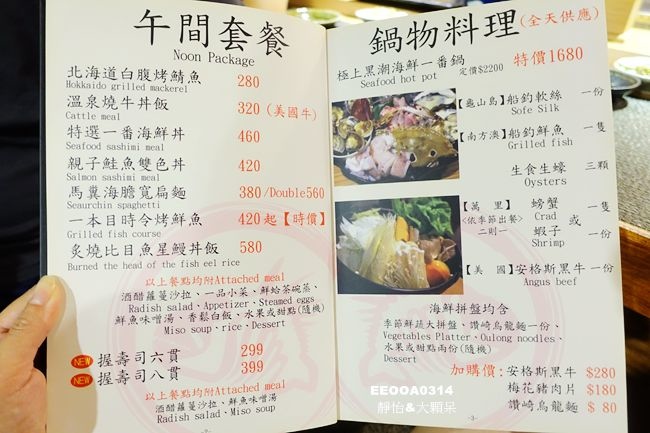 午間套餐
Noon Package
北海道白腹烤鯖魚 280
Hokkaido grilled mackerel
溫泉燒牛丼飯 320 (美國牛)
Cattle meal
特選一番海鮮丼 460
Seafood sashimi meal
親子鮭魚雙色丼 420
Salmon sashimi meal
馬糞海膽寬扁麵 380/Double560
Seaurchin spaghetti
一本目時令烤鮮魚 420起【時價】
Grilled fish course
炙燒比目魚星鰻丼飯 580
Burned the head of the fish eel rice
以上餐點均附Attached meal
酒醋蘿蔓沙拉、一品小菜、鮮蛤茶碗蒸、
Radish salad、Appetizer、Steamed eggs
鮮魚味噌湯、香鬆白飯、水果或甜點(隨機)
Miso soup、rice、Dessert
NEW 握壽司六貫 299
NEW 握壽司八貫 399
以上餐點均附Attached meal
酒醋蘿蔓沙拉、鮮魚味噌湯
Radish salad、Miso soup
鍋物料理(全天供應)
極上黑潮海鮮一番鍋 定價$2200 特價1680
Seafood hot pot
【龜山島】船釣軟絲 一份
Sofe Silk
【南方澳】船釣鮮魚 一隻
Grilled fish
生食生蠔 三顆
Oysters
【萬里】 螃蟹
<依季節出餐> Crad 或 一隻
二則一 蝦子
Shrimp 一份
【美國】安格斯黑牛 一份
Angus beef
海鮮拼盤均含
季節鮮蔬大拼盤、讚崎烏龍麵一份、
Vegetables Platter、Oulong noodles、
水果或甜點兩份(隨機)
Dessert
加購價:安格斯黑牛 $280
梅花豬肉片 $180
讚崎烏龍麵 $ 80
-3-
EEOOA0314
靜怡&大顆呆